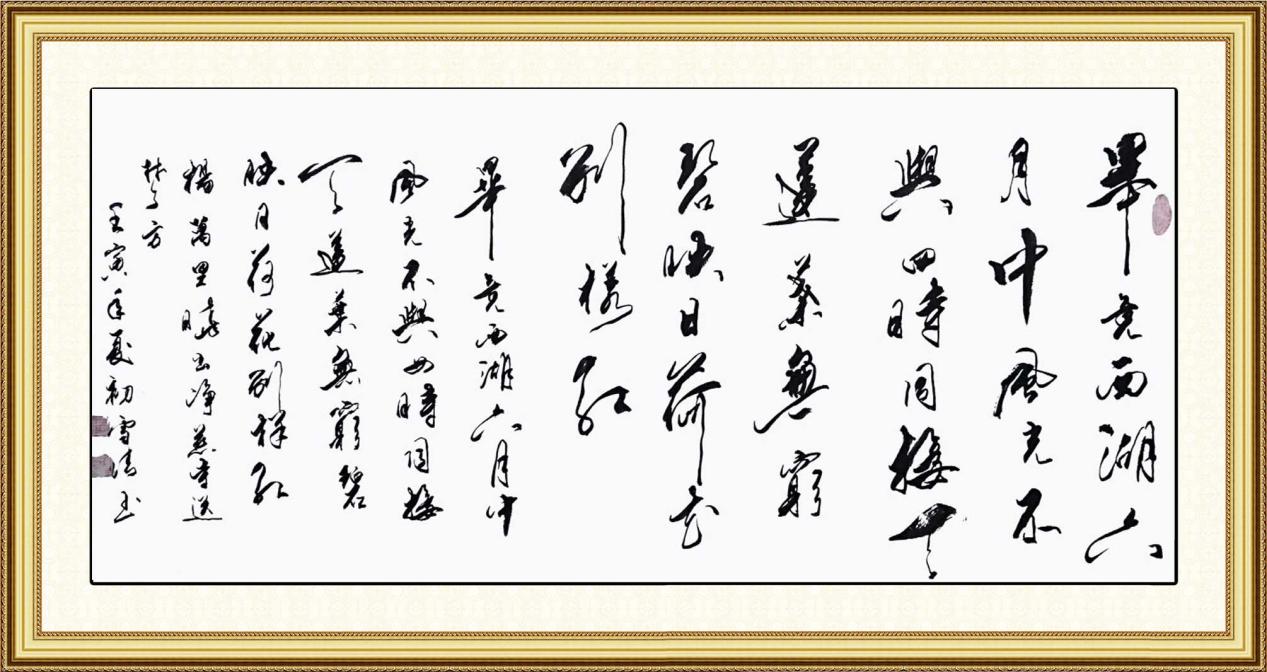 畢竟西湖六
月中風光不
與四時同接天
蓮葉無窮
碧映日荷花
別樣紅
畢竟西湖六月中
風光不與四時同接
天蓮葉無窮碧
映日荷花別樣紅
楊萬里曉出净慈寺送
林子方
壬寅年夏初雪清